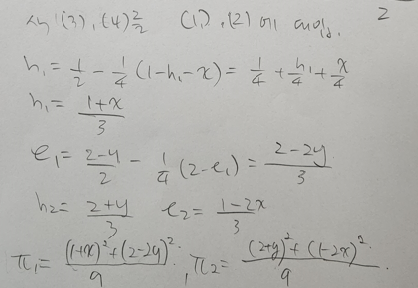 식 (3), (4)를 (1), (2)에 대입. 2
h₁ = 1/2 - 1/4 (1-h₁-x) = 1/4 + h₁/4 + x/4
h₁ = (1+x)/3
e₁ = (2-y)/2 - 1/4 (2-e₁) = (2-2y)/3
h₂ = (2+y)/3 e₂ = (1-2x)/3
π₁ = ((1+x)² + (2-2y)²)/9, π₂ = ((2+y)² + (1-2x)²)/9.